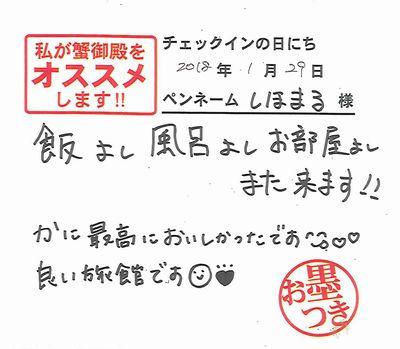 私が蟹御殿を
オススメ
します!!
チェックインの日にち
2018年 1月 29日
ペンネーム しほまる 様
飯よし 風呂よし お部屋よし
また来ます!!
かに最高においしかったです♡♡
良い旅館です☺♥
お墨つき